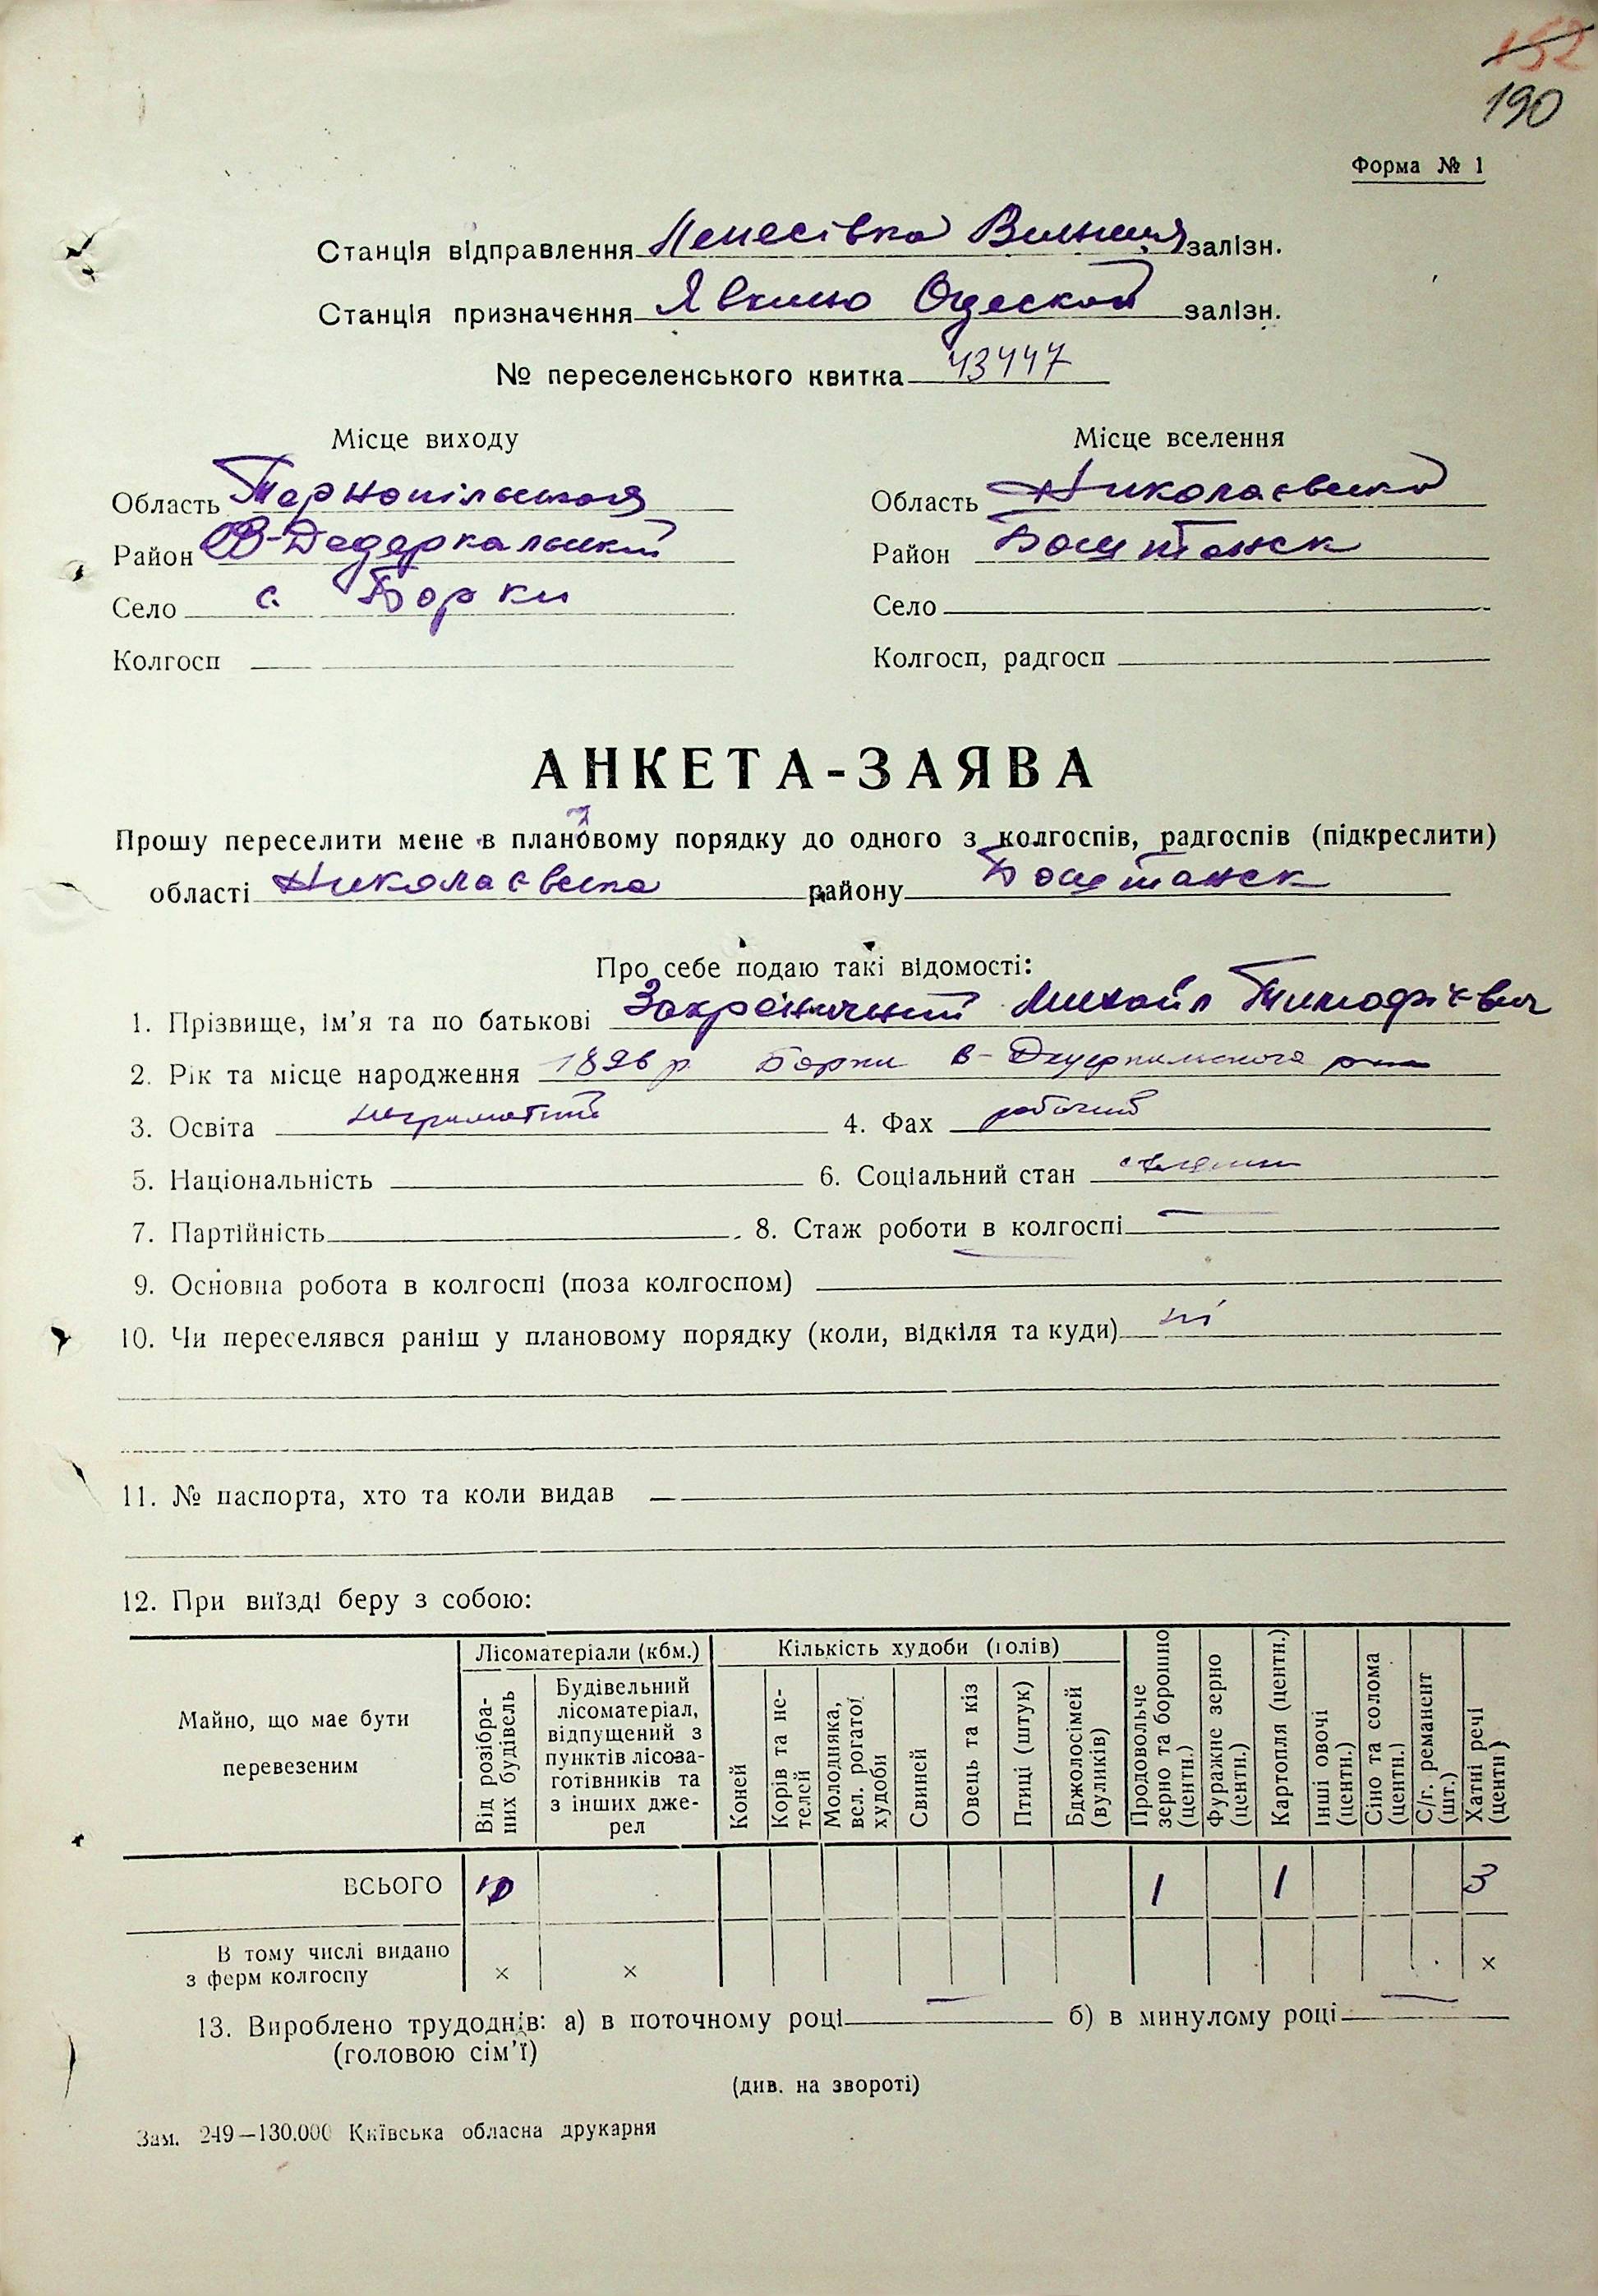 152
190
Форма № 1
Станція відправлення Лепесівка залізн.
Станція призначення Явкино Одеской залізн.
№ переселенського квитка 43447
Місце виходу Місце вселення
Область Тернопільська Область Николаевска
Район В-Дедеркальский Район Боштанск
Село с. Борки Село
Колгосп — Колгосп, радгосп
АНКЕТА-ЗАЯВА
Прошу переселити мене в плановому порядку до одного з колгоспів, радгоспів (підкреслити)
області Николаевска району Боштанск
Про себе подаю такі відомості:
1. Прізвище, ім'я та по батькові Михайл Тимофієвич
2. Рік та місце народження 1896 р Борки В-
3. Освіта 4. Фах робочий
5. Національність 6. Соціальний стан
7. Партійність 8. Стаж роботи в колгоспі —
9. Основна робота в колгоспі (поза колгоспом)
10. Чи переселявся раніш у плановому порядку (коли, відкіля та куди) ні
11. № паспорта, хто та коли видав —
12. При виїзді беру з собою:
Майно, що має бути перевезеним
Лісоматеріали (кбм.)
Від розібраних будівель
Будівельний лісоматеріал, відпущений з пунктів лісозаготівників та з інших джерел
Кількість худоби (голів)
Коней
Корів та нетелей
Молодняка, вел. рогатої худоби
Свиней
Овець та кіз
Птиці (штук)
Бджолосімей (вуликів)
Продовольче зерно та борошно (центн.)
Фуражне зерно (центн.)
Картопля (центн.)
Інші овочі (центн.)
Сіно та солома (центн.)
С/г. реманент (шт.)
Хатні речі (центн)
ВСЬОГО 10 1 1 3
В тому числі видано з ферм колгоспу × × ×
13. Вироблено трудоднів: а) в поточному році — б) в минулому році —
(головою сім'ї)
(див. на звороті)
Зам. 249—130.000 Київська обласна друкарня